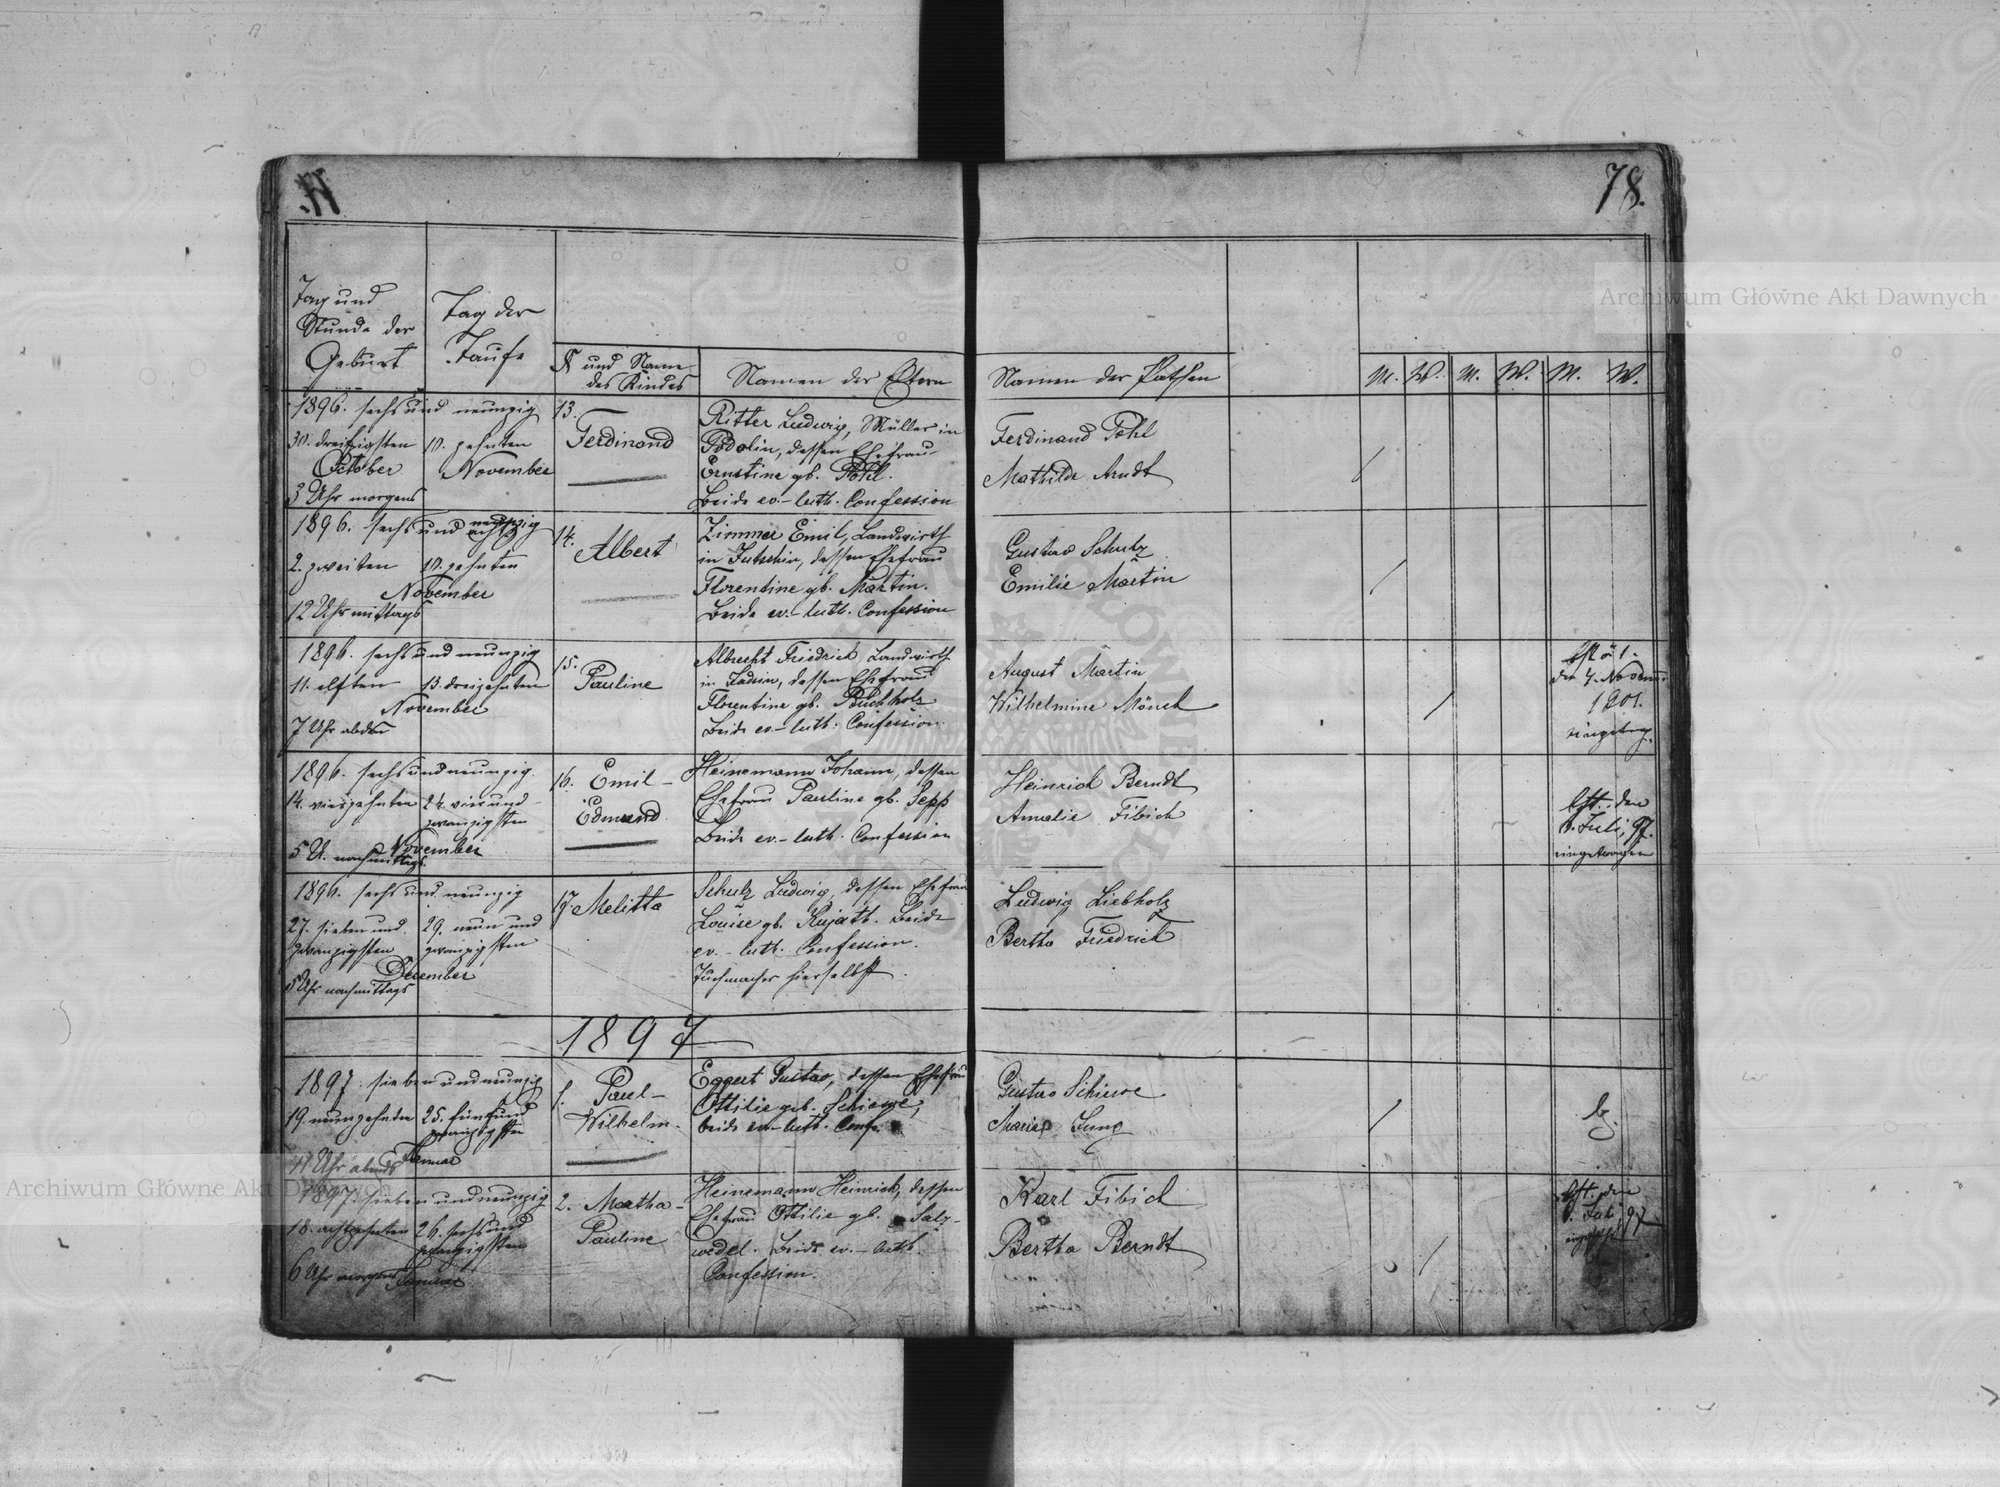 78.
Archiwum Główne Akt Dawnych
Tag und
Stunde der
Geburt
Tag der
Taufe
№ und Name
des Kindes
Namen der Eltern
Namen der Pathen
M. W. M. W. M. W.
1896. sechs und neunzig
30. dreißigsten
October
3 Uhr morgens
10. zehnten
November
13.
Ferdinand
Ritter Ludwig, Müller in
Podolin, dessen Ehefrau
Ernstine gb. Pohl.
Beide ev.-luth. Confession
Ferdinand Pohl
Mathilde Arndt
1896. sechs und neunzig
2. zweiten
10. zehnten
November
12 Uhr mittags
14.
Albert
Zimmer Emil, Landwirth
in dessen Ehefrau
Florentine gb. Martin.
Beide ev.-luth. Confession
Gustav Schulz
Emilie Martin
1896. sechs und neunzig
11. elften
13. dreizehnten
November
7 Uhr abds
15.
Pauline
Albrecht Friedrich Landwirth
in dessen Ehefrau
Florentine gb. Buchholz
Beide ev.-luth. Confession.
August Martin
Wilhelmine Mönch
den 4. November
1901.
1896. sechs und neunzig.
14. vierzehnten
24. vier und
zwanzigsten
November
5 U. nachmittags
16. Emil-
Edmund
Heinemann Johann, dessen
Ehefrau Pauline gb. Sepp
Beide ev.-luth. Confession
Heinrich Berndt
Amalie Fibich
den
Juli, 97.
eingetragen
1896. sechs und neunzig
27. sieben und
zwanzigsten
29. neun und
zwanzigsten
December
5 Uhr nachmittags
17. Melitta
Schulz Ludwig, dessen Ehefrau
Louise gb. Kujath. Beide
ev.-luth. Confession.
Tuchmacher hierselbst.
Ludwig Liebholz
Bertha Friedrich
1897
1897. sieben und neunzig
19. neunzehnten
25. fünf und
zwanzigsten
Januar
11 Uhr abends
1. Paul-
Wilhelm.
Eggert Gustav, dessen Ehefrau
Ottilie geb. Schiewe,
beide ev.-luth. Conf.
Gustav Schiewe
Maria Jung
Archiwum Główne Akt Dawnych
1897. sieben und neunzig
18. achtzehnten
26. sechs und
zwanzigsten
Januar
6 Uhr morgens
2. Martha-
Pauline
Heinemann Heinrich, dessen
Ehefrau Ottilie gb. Salz-
wedel. Beide ev.-luth.
Confession.
Karl Fibich
Bertha Berndt
den
Juli 97